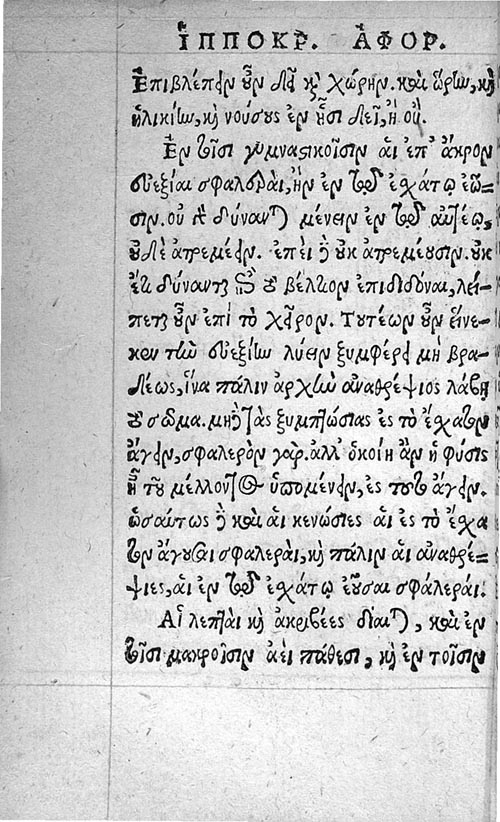 ἹΠΠΟΚΡ. ἈΦΟΡ.
Ἐπιβλέπειν οὖν δεῖ καὶ χώρην. καὶ ὥρην, καὶ
ἡλικίην, καὶ νούσους ἐν ᾗσι δεῖ, ἢ οὔ.
Ἐν τοῖσι γυμναστικοῖσιν αἱ ἐπ' ἄκρον
εὐεξίαι σφαλεραὶ, ἢν ἐν τῷ ἐσχάτῳ ἔω=
σιν. οὐ γὰρ δύνανται μένειν ἐν τῷ αὐτέῳ,
οὐδὲ ἀτρεμέειν. ἐπεὶ δὲ οὐκ ἀτρεμέουσιν. οὐκ
ἔτι δύνανται ἐπὶ τὸ βέλτιον ἐπιδιδόναι, λεί-
πεται οὖν ἐπὶ τὸ χεῖρον. Τουτέων οὖν εἵνε-
κεν τὴν εὐεξίην λύειν ξυμφέρει μὴ βρα-
δέως, ἵνα πάλιν ἀρχὴν ἀναθρέψιος λάβῃ
τὸ σῶμα. μηδὲ τὰς ξυμπτώσιας ἐς τὸ ἔσχατον
ἄγειν, σφαλερὸν γάρ. ἀλλ' ὁκοίη ἂν ἡ φύσις
ᾖ τοῦ μέλλοντος ὑπομένειν, ἐς τοῦτο ἄγειν.
ὡσαύτως δὲ καὶ αἱ κενώσιες αἱ ἐς τὸ ἔσχα
τον ἄγουσαι σφαλεραὶ, καὶ πάλιν αἱ ἀναθρέ-
ψιες, αἱ ἐν τῷ ἐσχάτῳ ἐοῦσαι σφάλεραι.
Αἱ λεπταὶ καὶ ἀκριβέες δίαιται, καὶ ἐν
τοῖσι μακροῖσιν αἰεὶ πάθεσι, καὶ ἐν τοῖσιν